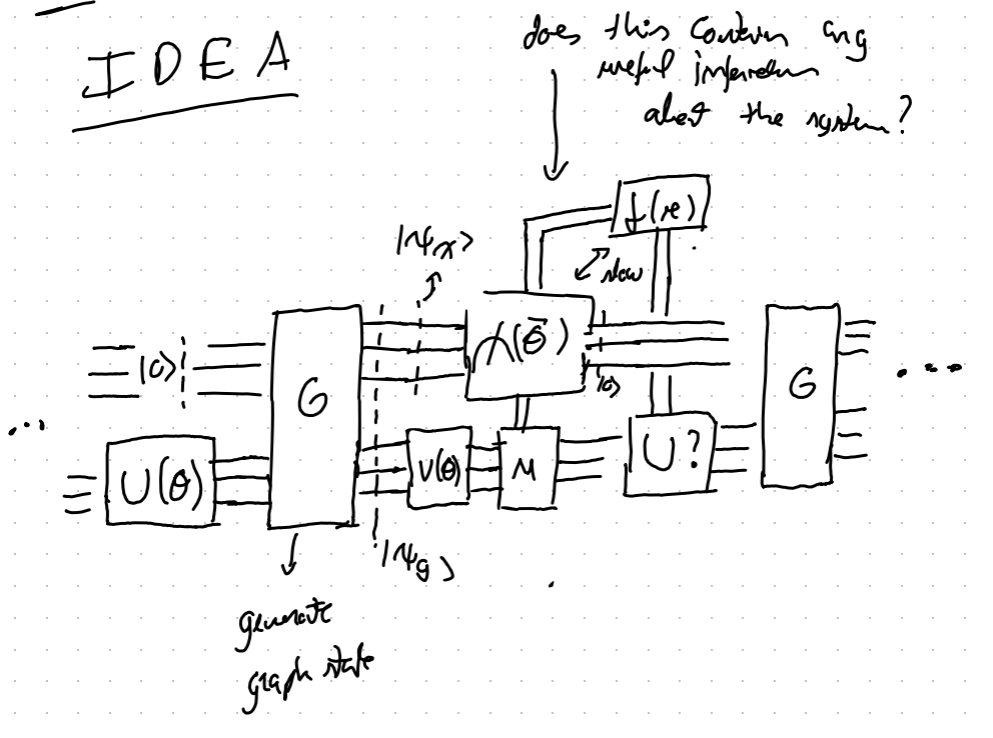 IDEA
does this contain any
useful information
about the system?
f(x)
slow
|ψ_x⟩
(θ⃗)
|0⟩
|0⟩
G
G
...
...
U(θ)
V(θ)
M
U?
|ψ_g⟩
generate
graph state